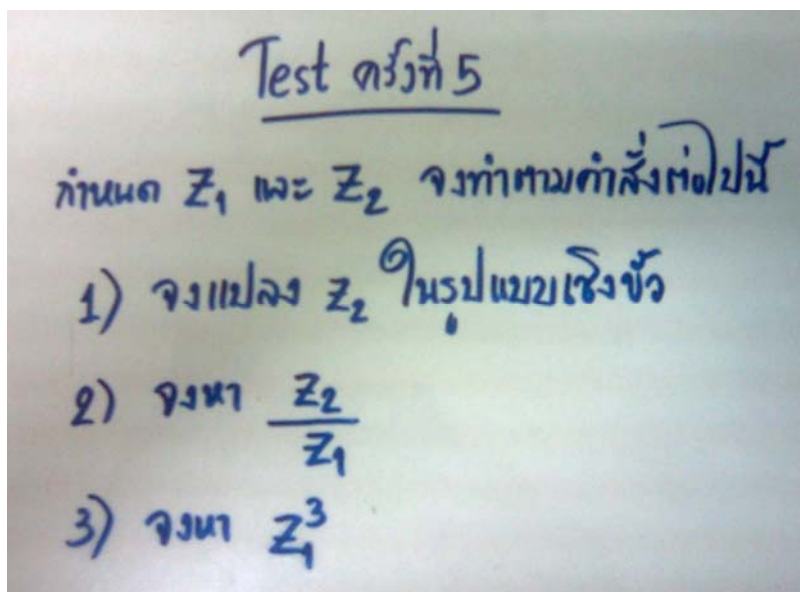 Test ครั้งที่ 5
กำหนด Z₁ และ Z₂ จงทำตามคำสั่งต่อไปนี้
1) จงแปลง Z₂ ในรูปแบบเชิงขั้ว
2) จงหา Z₂/Z₁
3) จงหา Z₁³